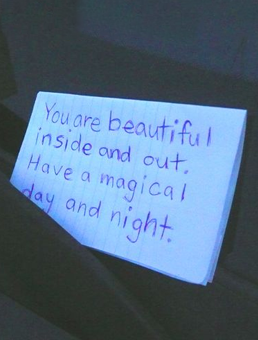 You are beautiful
inside and out.
Have a magical
day and night.